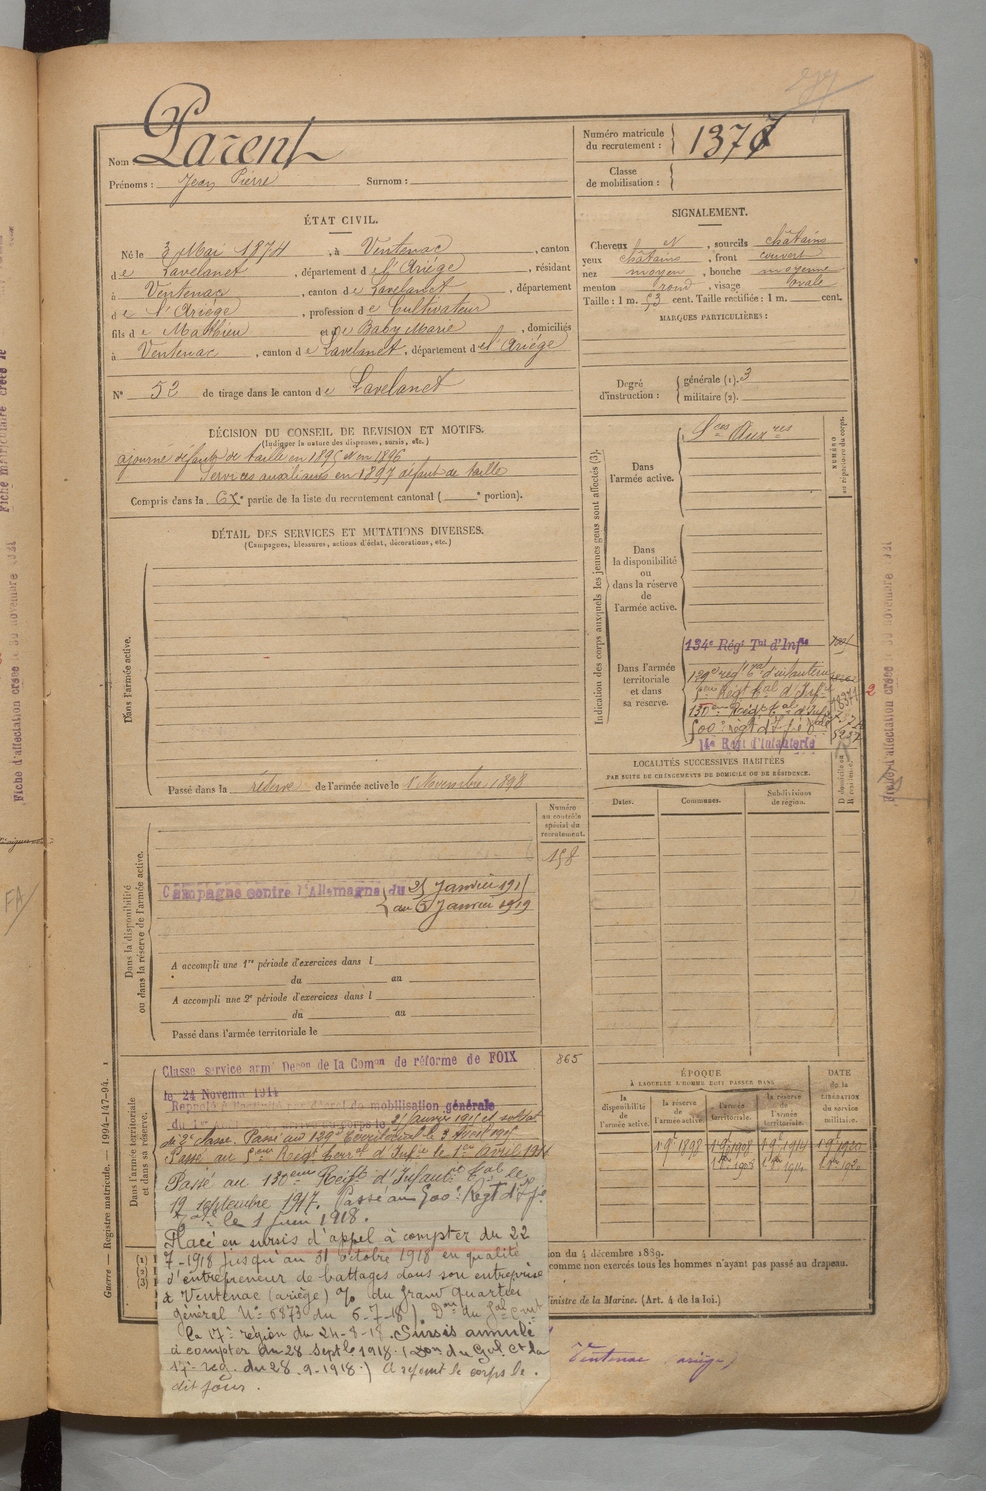 Parent
Nom :
Prénoms : Jean Pierre Surnom :
Numéro matricule du recrutement : 1377
Classe de mobilisation :
ÉTAT CIVIL.
Né le 3 Mai 1874, à Ventenac, canton
de Lavelanet, département de l'Ariége, résidant
à Ventenac, canton de Lavelanet, département
de l'Ariége, profession de Cultivateur
fils de Mathieu et de Baby Marie, domiciliés
à Ventenac, canton de Lavelanet, département de l'Ariége
N° 52 de tirage dans le canton de Lavelanet
SIGNALEMENT.
Cheveux N, sourcils châtains
yeux châtains, front couvert
nez moyen, bouche moyenne
menton rond, visage ovale
Taille : 1 m. 53 cent. Taille rectifiée : 1 m. cent.
MARQUES PARTICULIÈRES :
Degré d'instruction : générale (1). 3
militaire (2).
DÉCISION DU CONSEIL DE REVISION ET MOTIFS.
(Indiquer la nature des dispenses, sursis, etc.)
ajourné défaut de taille en 1895 et en 1896
Services auxiliaires en 1897 défaut de taille
Compris dans la 6e partie de la liste du recrutement cantonal ( e portion).
DÉTAIL DES SERVICES ET MUTATIONS DIVERSES.
(Campagnes, blessures, actions d'éclat, décorations, etc.)
Dans l'armée active.
Passé dans la réserve de l'armée active le 1 Novembre 1898
Indication des corps auxquels les jeunes gens sont affectés (3).
NUMÉRO au répertoire du corps.
Dans l'armée active.
Sces Auxres
Dans la disponibilité ou dans la réserve de l'armée active.
Dans l'armée territoriale et dans sa réserve.
134e Régt Tal d'Infie
129e régt tal d'infanterie
5eme Régt tal d'Infie
130eme Régt tal d'Infie
500e régt
14e Régt d'Infanterie
LOCALITÉS SUCCESSIVES HABITÉES
PAR SUITE DE CHANGEMENTS DE DOMICILE OU DE RÉSIDENCE.
Dates. Communes. Subdivisions de région.
Numéro au contrôle spécial du recrutement.
158
Dans la disponibilité ou dans la réserve de l'armée active.
Campagne contre l'Allemagne du 25 Janvier 1915
au 5 Janvier 1919
A accompli une 1re période d'exercices dans l
du au
A accompli une 2e période d'exercices dans l
du au
Passé dans l'armée territoriale le
865
Dans l'armée territoriale et dans sa réserve.
Classé service armé Décon de la Comon de réforme de FOIX
le 24 Novem 1914
Rappelé à l'activité par décret de mobilisation générale
du 1er arrivé au corps le 25 Janvier 1915 et soldat
de 2e classe. Passé au 129e Territorial le 2 Avril 1915
Passé au 5eme Régt terral d'Infie le 1er Avril 191
Passé au 130eme Régt d'Infanti tal le
19 septembre 1917. Passé au 500e Régt
le 1 juin 1918.
Placé en sursis d'appel à compter du 22
7-1918 jusqu'au 31 octobre 1918 en qualité
d'entrepreneur de battages dans son entreprise
à Ventenac (ariège) % du Grand quartier
général N° 6873 du 6-7-18) Don du Gal Cmt
la 17e région du 24-8-18. Sursis annulé
à compter du 28 Sept le 1918. (Don du Gal Ct la
17e reg. du 28-9-1918.) A rejoint le corps le
dit jour.
ÉPOQUE
À LAQUELLE L'HOMME DOIT PASSER DANS
DATE de la LIBÉRATION du service militaire.
la disponibilité de l'armée active. la réserve de l'armée active. l'armée territoriale. la réserve de l'armée territoriale.
1 9e 1898 1 9e 1908 1 9e 1914 1 9e 1920
ion du 4 décembre 1889.
comme non exercés tous les hommes n'ayant pas passé au drapeau.
inistre de la Marine. (Art. 4 de la loi.)
Ventenac (ariège)
Guerre — Registre matricule. — 1994-147-94.
Fiche d'affectation créée le 30 novembre 1921
FA